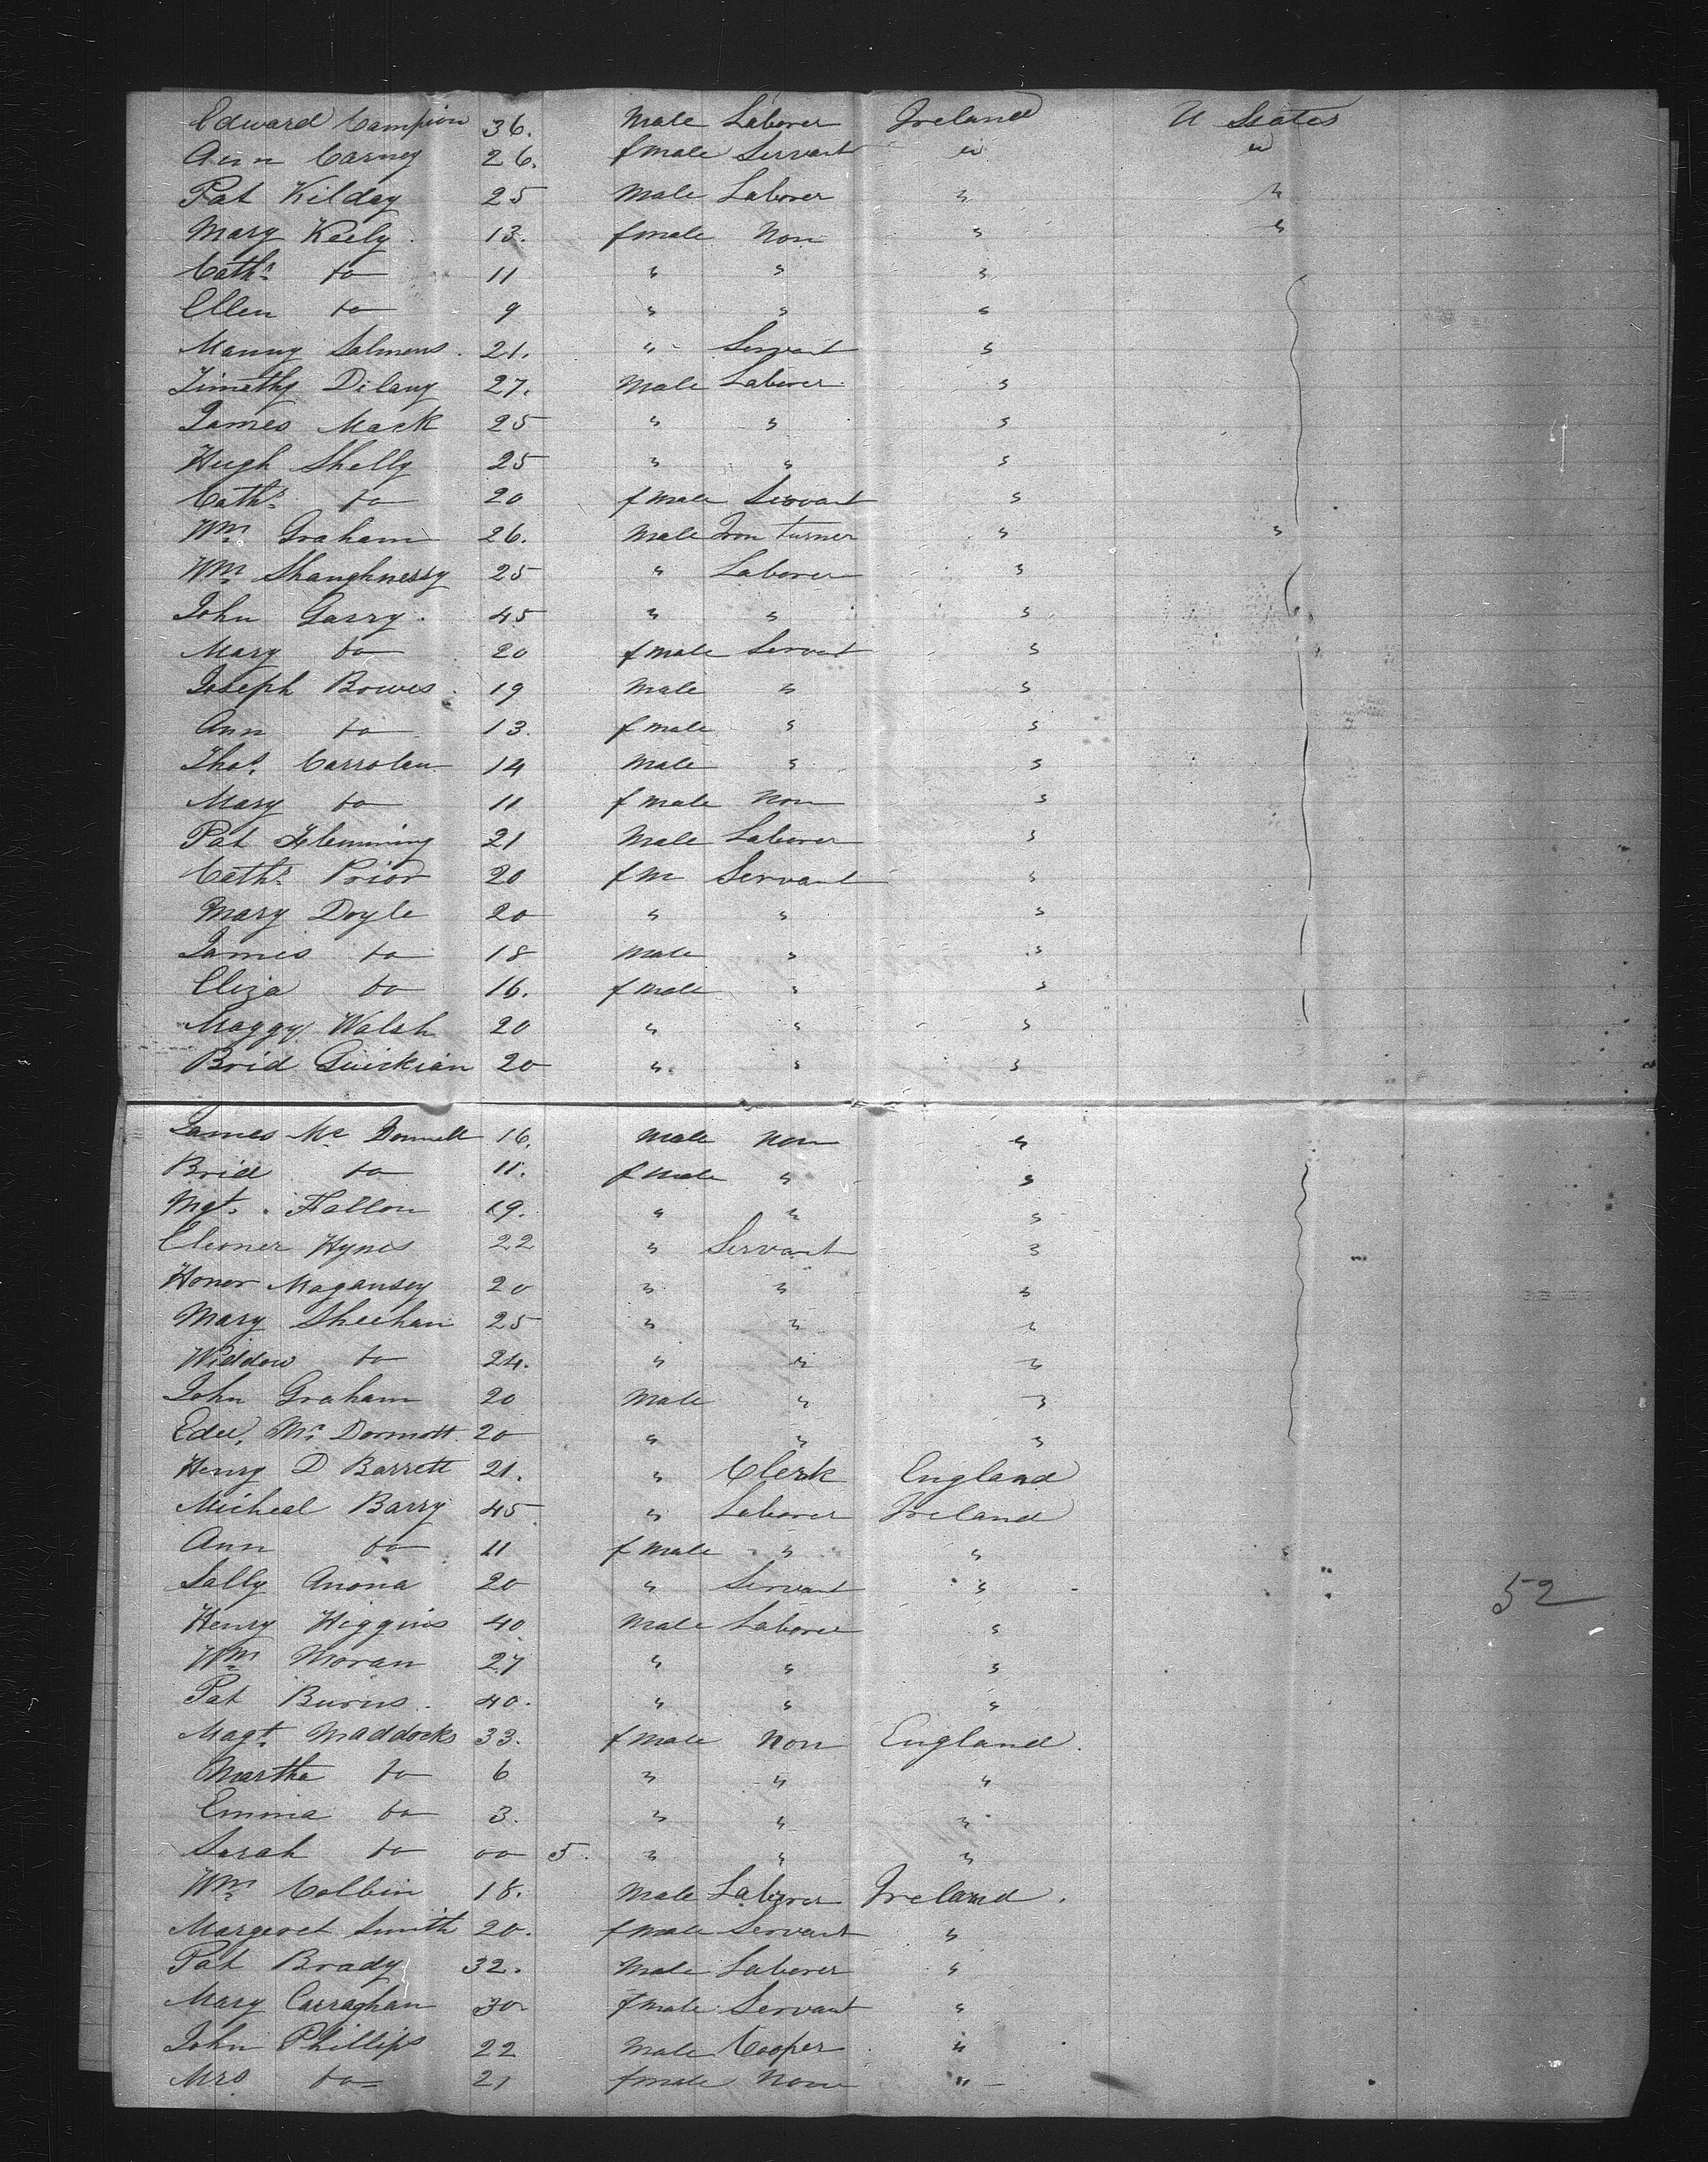 Edward Campion 36. Male Laborer Ireland U States
Ann Carney 26. fmale Servant " "
Pat Kilday 25 Male Laborer " "
Mary Keely 13. fmale Non " "
Cathe do 11 " " "
Ellen do 9 " " "
Manny Salmons 21. " Servant "
Timothy Dilany 27. Male Laborer "
James Mack 25 " " "
Hugh Shelly 25 " " "
Cathe do 20 fmale Servant "
Wm Graham 26. Male Iron turner " "
Wm Shaughnessy 25 " Laborer "
John Garry 45 " " "
Mary do 20 fmale Servant "
Joseph Bowes 19 Male " "
Ann do 13. fmale " "
Thos. Carrolan 14 Male " "
Mary do 11 fmale Non "
Pat Flemming 21 Male Laborer "
Cathe Prior 20 fm Servant "
Mary Doyle 20 " " "
James do 18 Male " "
Eliza do 16. fmale " "
Maggy Walsh 20 " " "
Brid Quirkian 20 " " "
James Mc Donnell 16. Male Non "
Brid do 11. fmale " "
Mgt. Fallon 19. " " "
Eleoner Hynes 22 " Servant "
Honor Magansey 20 " " "
Mary Sheehan 25 " " "
Widdow do 24. " " "
John Graham 20 Male " "
Edw. Mc Dormott 20 " " "
Henry D Barrett 21. " Clerk England
Micheal Barry 45 " Laborer Ireland
Ann do 11 fmale " "
Sally Anona 20 " Servant "
52
Henry Higgins 40 Male Laborer "
Wm Moran 27 " " "
Pat Burns 40. " " "
Magt. Maddocks 33. fmale Non England.
Martha do 6 " " "
Emma do 3. " " "
Sarah do 00 5. " " "
Wm Colbin 18. Male Laborer Ireland.
Margeret Smith 20. fmale Servant "
Pat Brady 32. Male Laborer "
Mary Carraghan 30 fmale Servant "
John Phillips 22 Male Cooper "
Mrs do 21 fmale None "